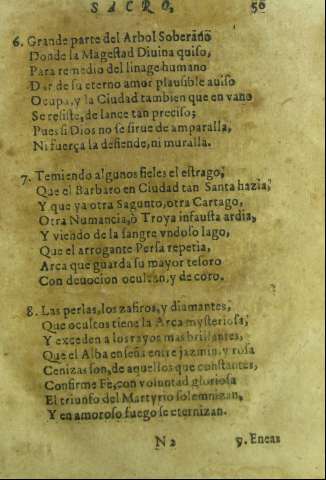 SACRO, 50
6. Grande parte del Arbol Soberano
Donde la Magestad Diuina quiso,
Para remedio del linage humano
Dar de su eterno amor plausible auiso
Ocupa, y la Ciudad tambien que en vano
Se resiste, de lance tan preciso;
Pues si Dios no se sirue de amparalla,
Ni fuerça la defiende, ni muralla.
7. Temiendo algunos fieles el estrago,
Que el Barbaro en Ciudad tan Santa hazia,
Y que ya otra Sagunto, otra Cartago,
Otra Numancia, ò Troya infausta ardia,
Y viendo de la sangre vndoso lago,
Que el arrogante Persa repetia,
Arca que guarda su mayor tesoro
Con deuocion ocultan, y decoro.
8. Las perlas, los zafiros, y diamantes,
Que ocultos tiene la Arca mysteriosa,
Y exceden a los rayos mas brillantes,
Que el Alba enseña entre jazmin, y rosa
Cenizas son, de aquellos que constantes,
Confirme Fè, con voluntad gloriosa
El triunfo del Martyrio solemnizan,
Y en amoroso fuego se eternizan.
N 2 9. Eneas